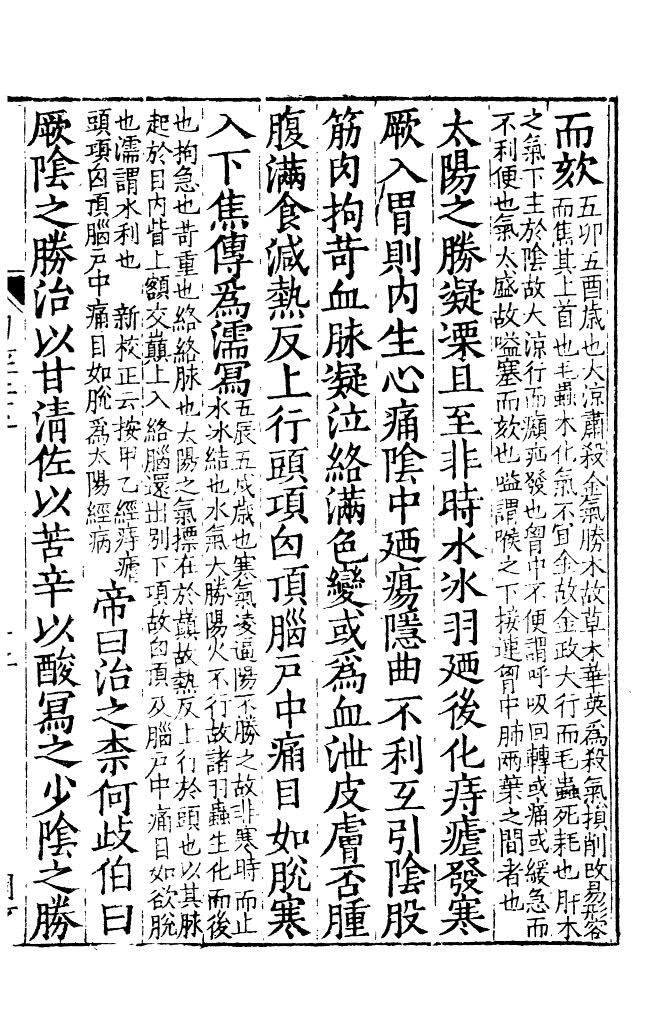 而欬五卯五酉歲也大涼肅殺金氣勝木故草木華英爲殺氣損削改易形容
而焦其上首也毛蟲木化氣不宜金故金政大行而毛蟲死耗也肝木
之氣下主於陰故大涼行而㿗疝發也胷中不便謂呼吸回轉或痛或緩急而
不利便也氣太盛故嗌塞而欬也嗌謂喉之下接連胷中肺兩葉之間者也
太陽之勝凝凓且至非時水冰羽廼後化痔瘧發寒
厥入胃則內生心痛陰中廼瘍隱曲不利互引陰股
筋肉拘苛血脉凝泣絡滿色變或爲血泄皮膚否腫
腹滿食減熱反上行頭項囟頂腦戶中痛目如脫寒
入下焦傳爲濡寫五辰五戌歲也寒氣凌逼陽不勝之故非寒時而止
水冰結也水氣大勝陽火不行故諸羽蟲生化而後
也拘急也苛重也絡絡脉也太陽之氣摽在於巔故熱反上行於頭也以其脉
起於目內眥上額交巔上入絡腦還出別下項故囟頂及腦戶中痛目如欲脫
也濡謂水利也 新校正云按甲乙經痔瘧
頭項囟頂腦戶中痛目如脫爲太陽經病 帝曰治之柰何歧伯曰
厥陰之勝治以甘清佐以苦辛以酸寫之少陰之勝